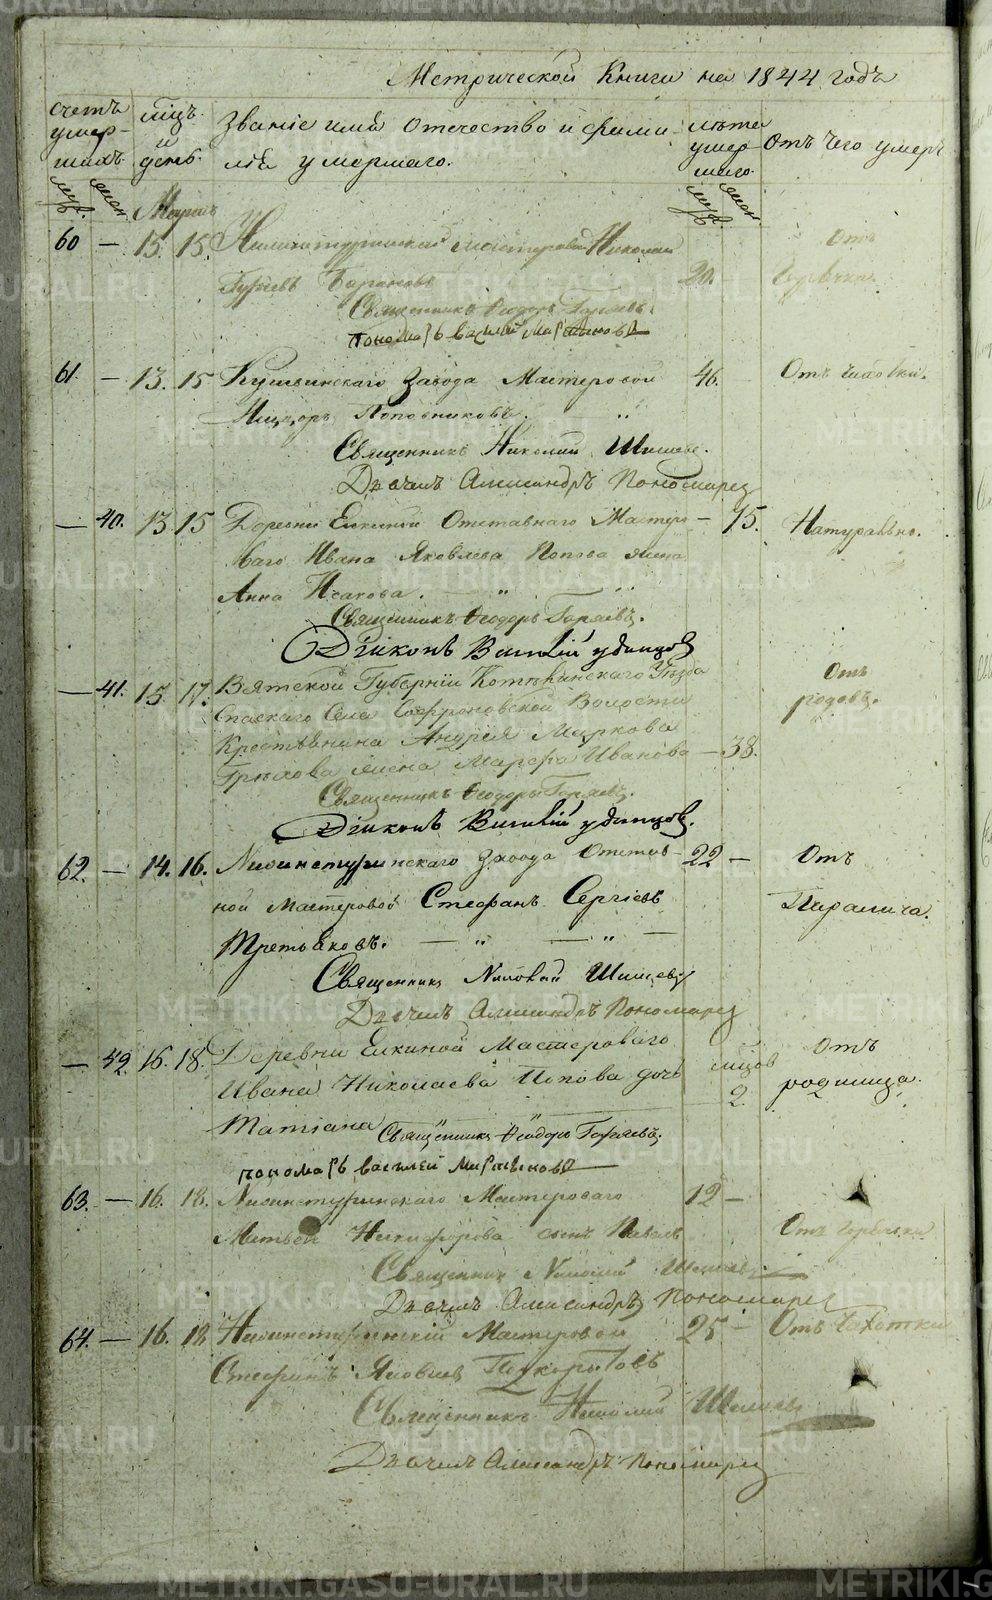 Метрической Книги на 1844 годъ
счетъ умер- шихъ. муж. жен.
мцъ. и день.
Званіе имя отечество и фами-
лія умершаго.
лѣта умер шаго. муж. жен.
Отъ чего умеръ
60 — 13. 15. Нижнетуринской мастеровой Николай
Гурьевъ Барановъ 20. Отъ Горячки
Священникъ Ѳеодоръ Горяевъ.
пономарь василей мартиновъ
61. — 13. 15 Кушвинскаго Завода Мастеровой 46. Отъ чахотки.
Священникъ Николай Шишевъ.
Дьячекъ Александръ Пономарев
— 40. 13 15 Деревни Елкиной Отставнаго Мастеро — 75. Натурально.
ваго Ивана Яковлева Попова жена
Анна Исакова. — „
Священникъ Ѳеодоръ Горяевъ.
Діаконъ Василій удинцов
— 41. 15 17. Вятской Губерніи Уѣзда Отъ родовъ.
Спаскаго Села Волости
Крестьянина Андрея Маркова
жена Марфа Иванова — 38.
Священникъ Ѳеодоръ Горяевъ.
Діаконъ Василій удинцов.
62. — 14. 16. Нижнетуринскаго Завода Отстав- 22 — Отъ
ной Мастеровой Стефанъ Сергіевъ Паралича.
Третьяковъ. — „ — „ —
Священникъ Николай Шишевъ
Дьячекъ Александръ Пономарев
— 42. 16. 18. Деревни Елкиной Мастероваго мцов Отъ
Ивана Николаева Попова дочь 2. родимца.
Татіана Священникъ Ѳеодоръ Горяевъ.
пономарь василей Мартиновъ
63. — 16. 18. Нижнетуринскаго Мастероваго 12 —
Матвея Никифорова сынъ Павелъ Отъ горячки
Священник Николай Шишевъ
Дьячекъ Александръ Пономарев
64. — 16. 18 Нижнетуринскій Мастеровой 25 — Отъ Чахотки
Стефанъ Яковлев
Священникъ Николай Шишевъ
Дьячекъ Александръ Пономарев
METRIKI.GASO-URAL.RU